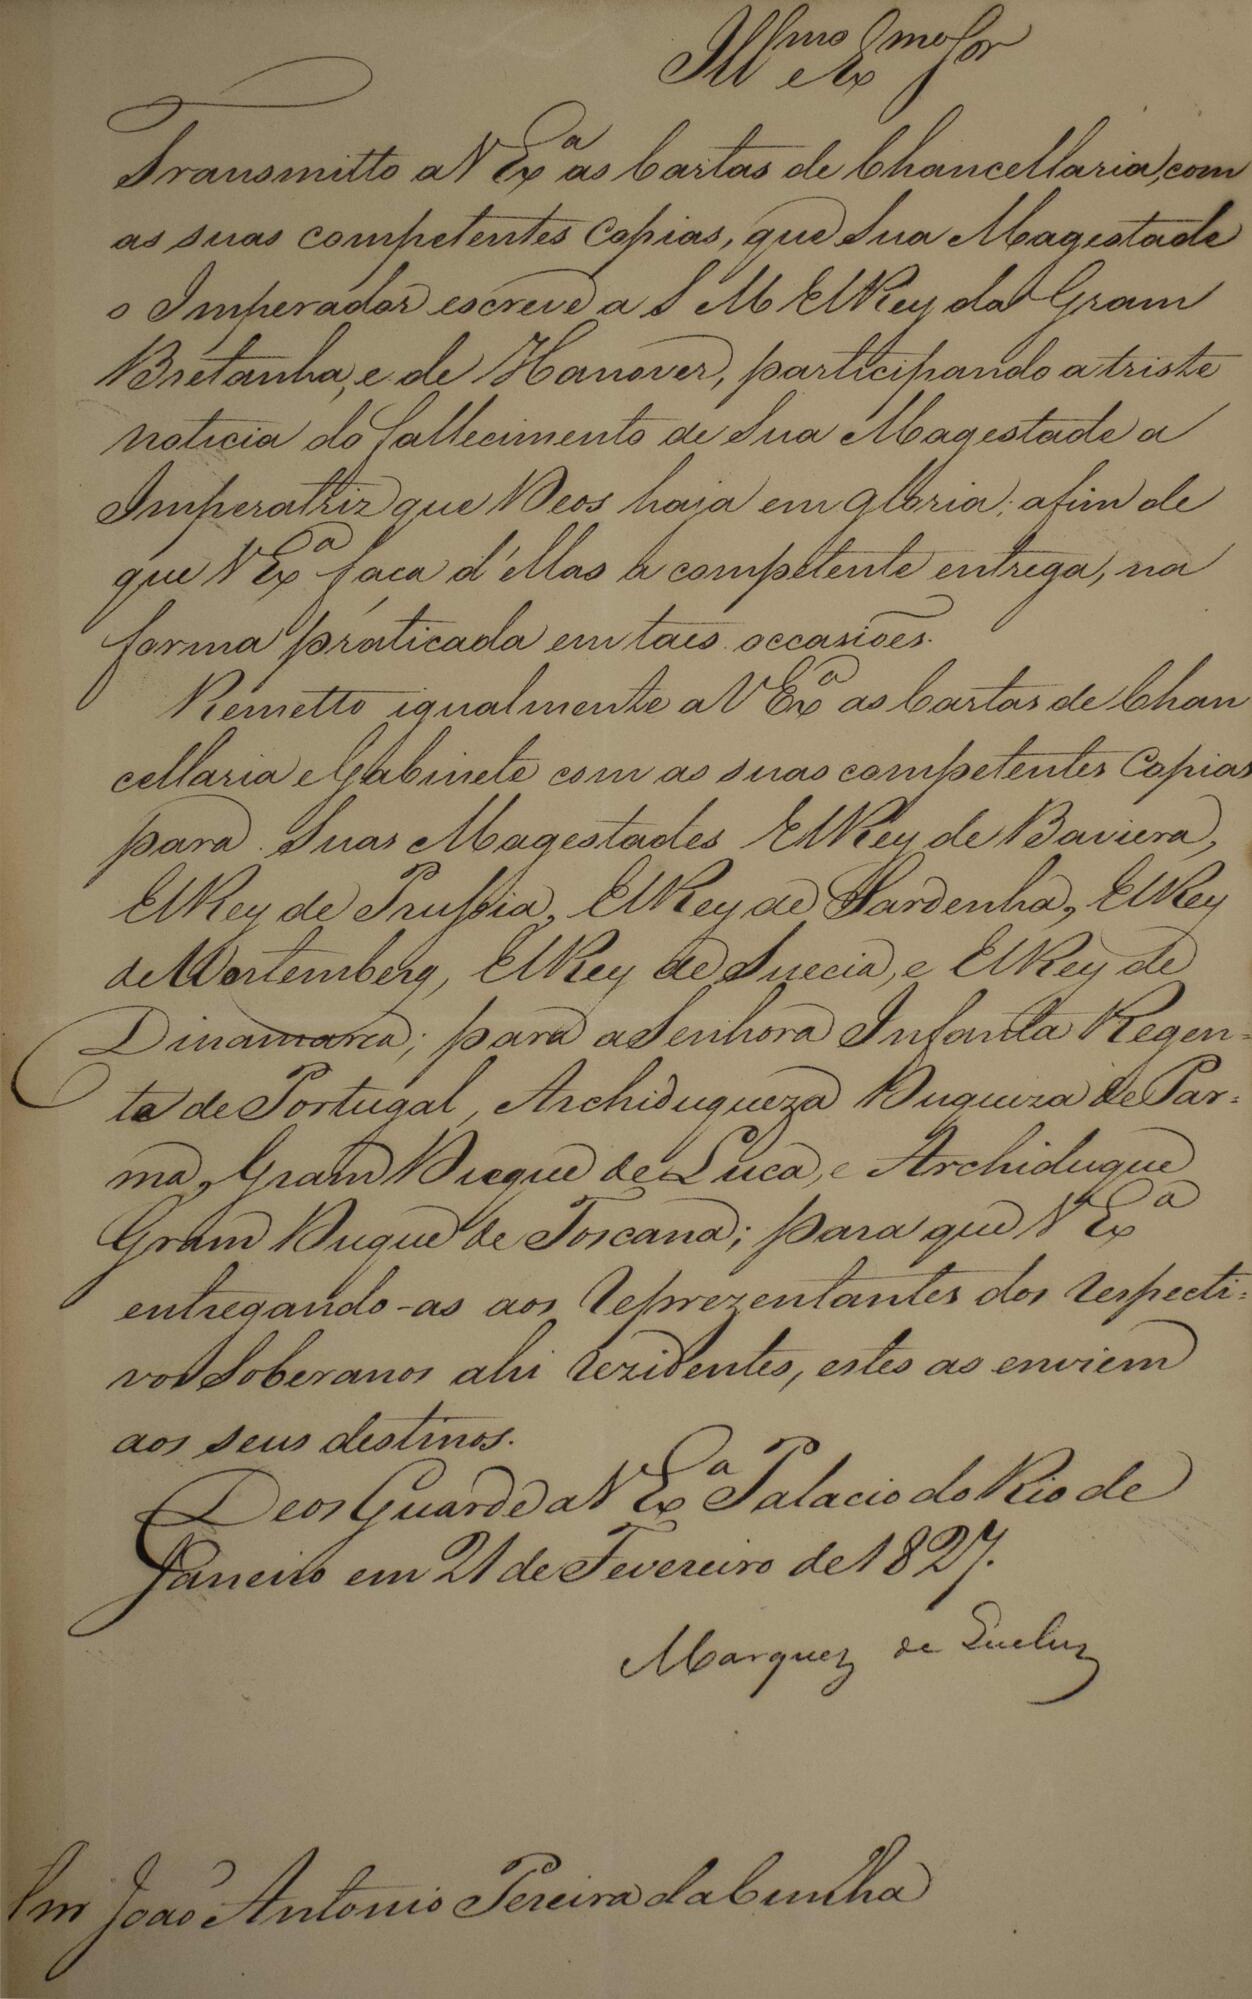 Illmo e Exmo Sor
Transmitto a V Exa as Cartas de Chancellaria, com
as suas competentes Copias, que Sua Magestade
o Imperador escreve a S M ElRey da Gram
Bretanha, e de Hanover, participando a triste
noticia do fallecimento de Sua Magestade a
Imperatriz que Deos haja em gloria; afim de
que V Exa faça d'éllas a competente entrega, na
forma práticada em taes occasiões.
Remetto igualmente a V Exa as Cartas de Chan
cellaria e Gabinete com as suas competentes Copias
para Suas Magestades ElRey de Baviera,
ElRey de Prussia, ElRey de Sardenha, ElRey
de Wortemberg, ElRey de Suecia, e ElRey de
Dinamarca; para a Senhora Infanta Regen=
te de Portugal, Archiduqueza Duqueza de Par=
ma, Gram Duque de Luca, e Archiduque
Gram Duque de Toscana; para que V Exa
entregando-as aos reprezentantes dos respecti=
vos Soberanos ahi rezidentes, estes as enviem
aos seus destinos.
Deos Guarde a V Exa Palacio do Rio de
Janeiro em 21 de Fevereiro de 1827.
Marquez de Queluz
Snr João Antonio Pereira da Cunha